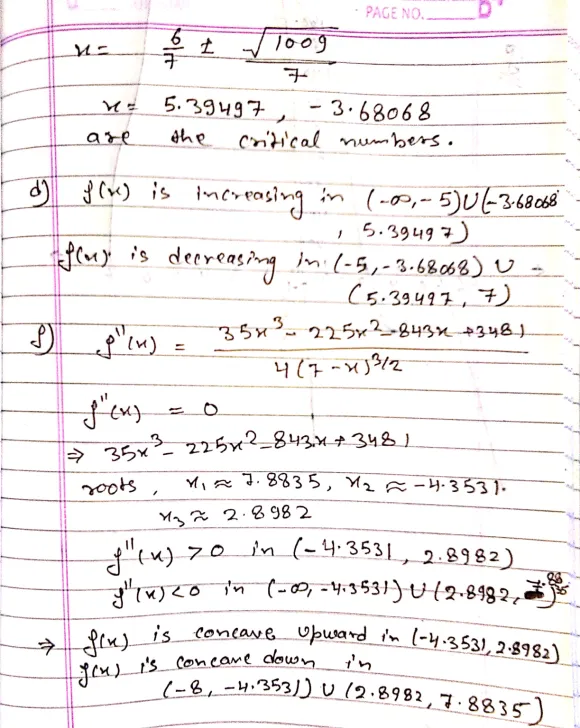 PAGE NO.
x = 6/7 ± √1009/7
x = 5.39497, -3.68068
are the critical numbers.
d) f(x) is increasing in (-∞, -5) U (-3.68068
, 5.39497)
f(x) is decreasing in (-5, -3.68068) U
(5.39497, 7)
f) f''(x) = 35x³ - 225x² - 843x + 3481 / 4(7-x)^3/2
f''(x) = 0
⇒ 35x³ - 225x² - 843x + 3481
roots, x₁ ≈ 7.8835, x₂ ≈ -4.3531.
x₃ ≈ 2.8982
f''(x) > 0 in (-4.3531, 2.8982)
f''(x) < 0 in (-∞, -4.3531) U (2.8982, 7.8835)
⇒ f(x) is concave upward in (-4.3531, 2.8982)
f(x) is concave down in
(-8, -4.3531) U (2.8982, 7.8835)